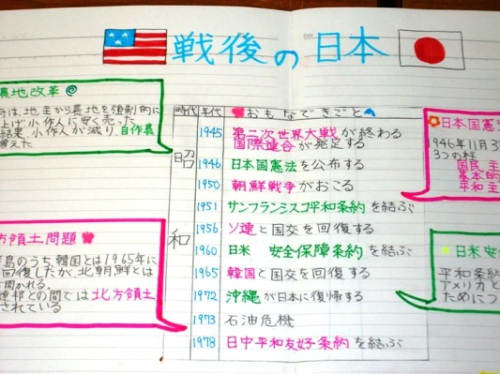 戦後の日本
農地改革
は、地主から農地を強制的に
上げ小作人に安く売った
結果、小作人が減り、自作農
増えた
時代 年代 おもなできごと
昭和
1945 第二次世界大戦が終わる
国際連合が発足する
1946 日本国憲法を公布する
1950 朝鮮戦争がおこる
1951 サンフランシスコ平和条約を結ぶ
1956 ソ連と国交を回復する
1960 日米 安全保障条約を結ぶ
1965 韓国と国交を回復する
1972 沖縄が日本に復帰する
1973 石油危機
1978 日中平和友好条約を結ぶ
日本国憲法
946年11月3
3つの柱
国民主
基本的
平和主
方領土問題
島のうち、韓国とは1965年に
回復したが、北朝鮮とは
開かれる。
連邦との間では北方領土
されている
日米安
平和条約
アメリカと
ためにつ